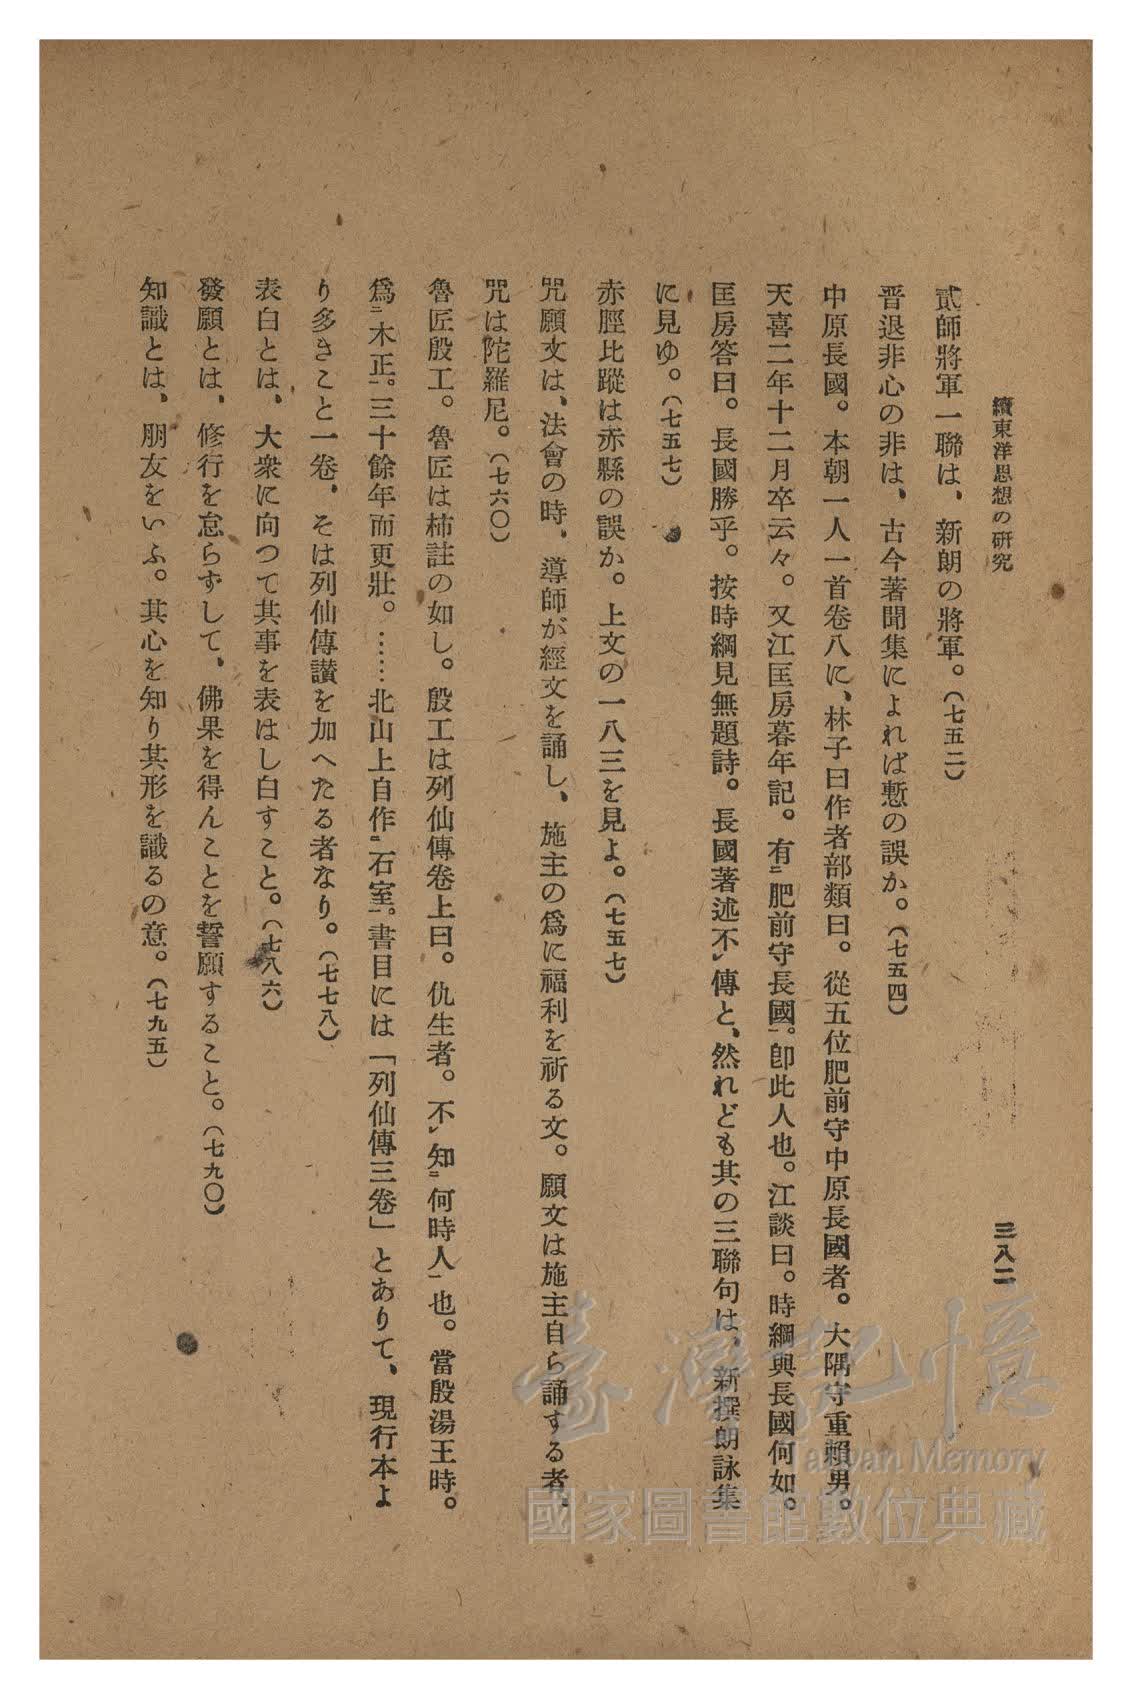 續東洋思想の硏究
三八二
貳師將軍一聯は、新朗の將軍。(七五二)
晋退非心の非は、古今著聞集によれば慙の誤か。(七五四)
中原長國。本朝一人一首卷八に、林子曰作者部類曰。從五位肥前守中原長國者。大隅守重賴男。
天喜二年十二月卒云々。又江匡房暮年記。有二肥前守長國一。卽此人也。江談曰。時綱與長國何如。
匡房答曰。長國勝乎。按時綱見無題詩。長國著述不レ傳と、然れども其の三聯句は、新撰朗詠集
に見ゆ。(七五七)
赤脛比蹤は赤縣の誤か。上文の一八三を見よ。(七五七)
咒願文は、法會の時、導師が經文を誦し、施主の爲に福利を祈る文。願文は施主自ら誦する者、
咒は陀羅尼。(七六〇)
魯匠殷工。魯匠は柿註の如し。殷工は列仙傳卷上曰。仇生者。不レ知二何時人一也。當殷湯王時。
爲二木正一。三十餘年而更壯。……北山上自作二石室一。書目には「列仙傳三卷」とありて、現行本よ
り多きこと一卷、そは列仙傳讃を加へたる者なり。(七七八)
表白とは、大衆に向つて其事を表はし白すこと。(七八六)
發願とは、修行を怠らずして、佛果を得んことを誓願すること。(七九〇)
知識とは、朋友をいふ。其心を知り其形を識るの意。(七九五)
臺灣記憶
Taiwan Memory
國家圖書館數位典藏